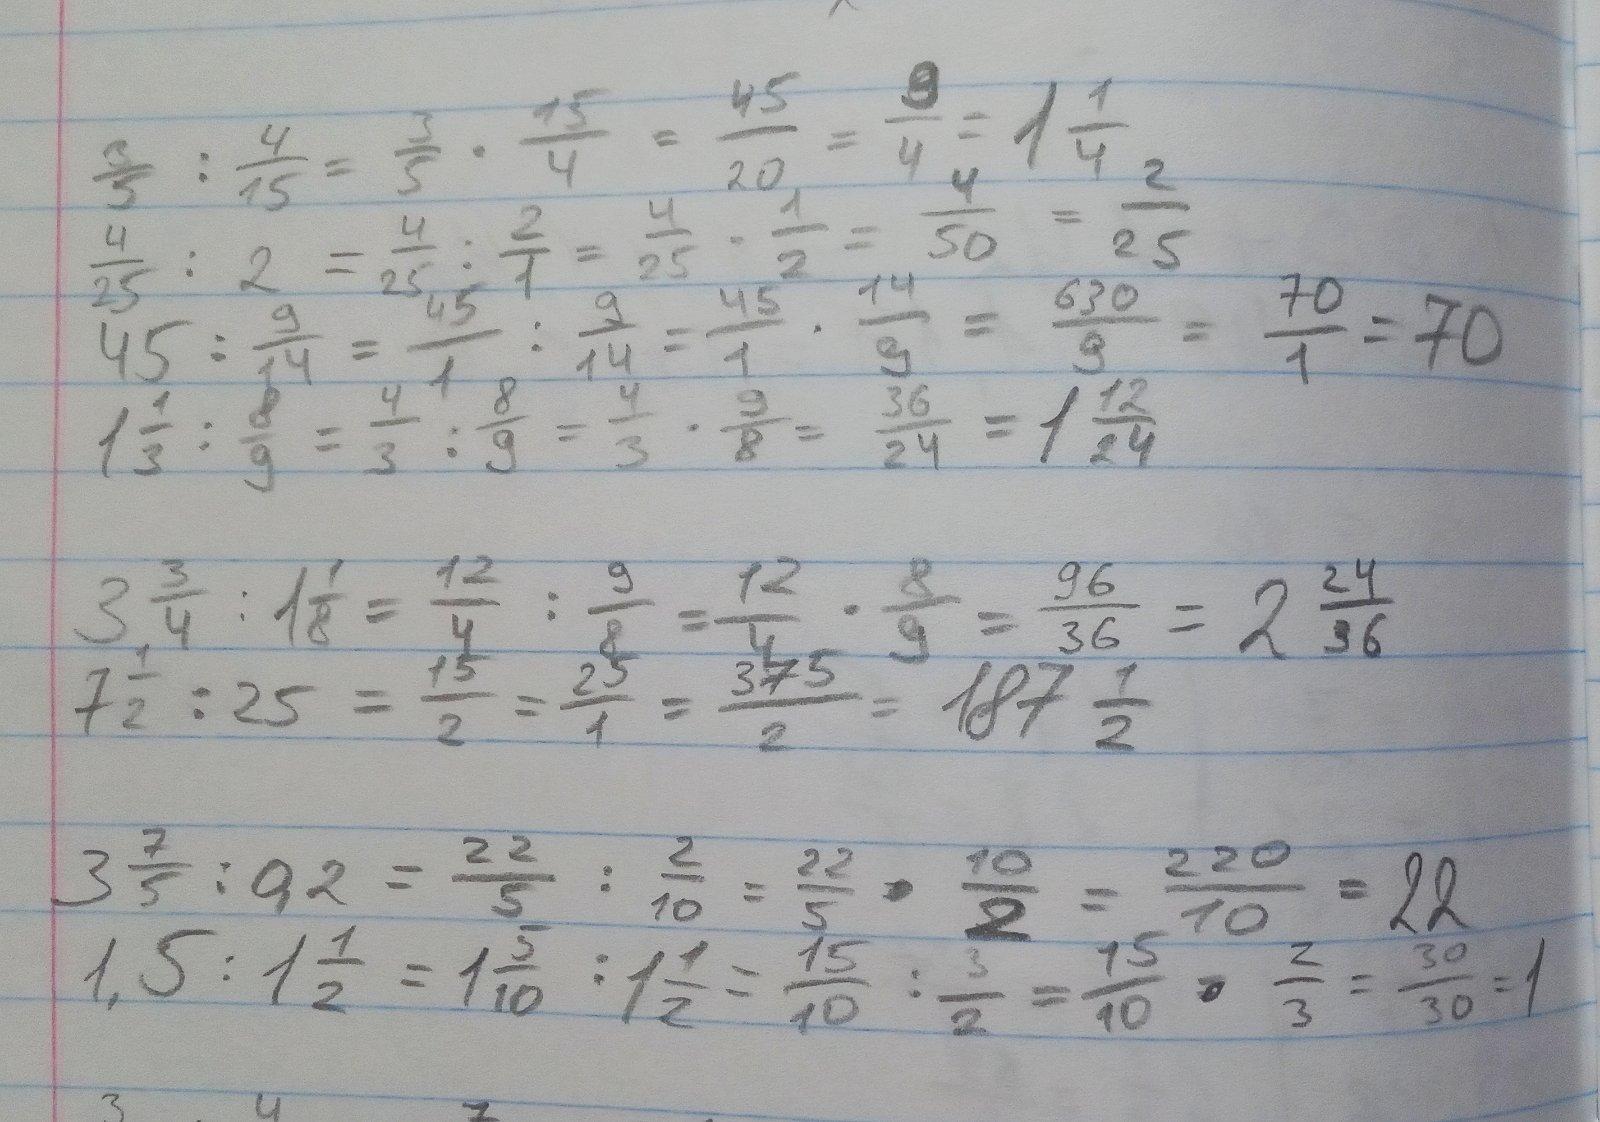 3/5 : 4/15 = 3/5 · 15/4 = 45/20 = 9/4 = 1 1/4
4/25 : 2 = 4/25 : 2/1 = 4/25 · 1/2 = 4/50 = 2/25
45 : 9/14 = 45/1 : 9/14 = 45/1 · 14/9 = 630/9 = 70/1 = 70
1 1/3 : 8/9 = 4/3 : 8/9 = 4/3 · 9/8 = 36/24 = 1 12/24
3 3/4 : 1 1/8 = 12/4 : 9/8 = 12/4 · 8/9 = 96/36 = 2 24/36
7 1/2 : 25 = 15/2 = 25/1 = 375/2 = 187 1/2
3 7/5 : 0,2 = 22/5 : 2/10 = 22/5 · 10/2 = 220/10 = 22
1,5 : 1 1/2 = 1 5/10 : 1 1/2 = 15/10 : 3/2 = 15/10 · 2/3 = 30/30 = 1
3 4